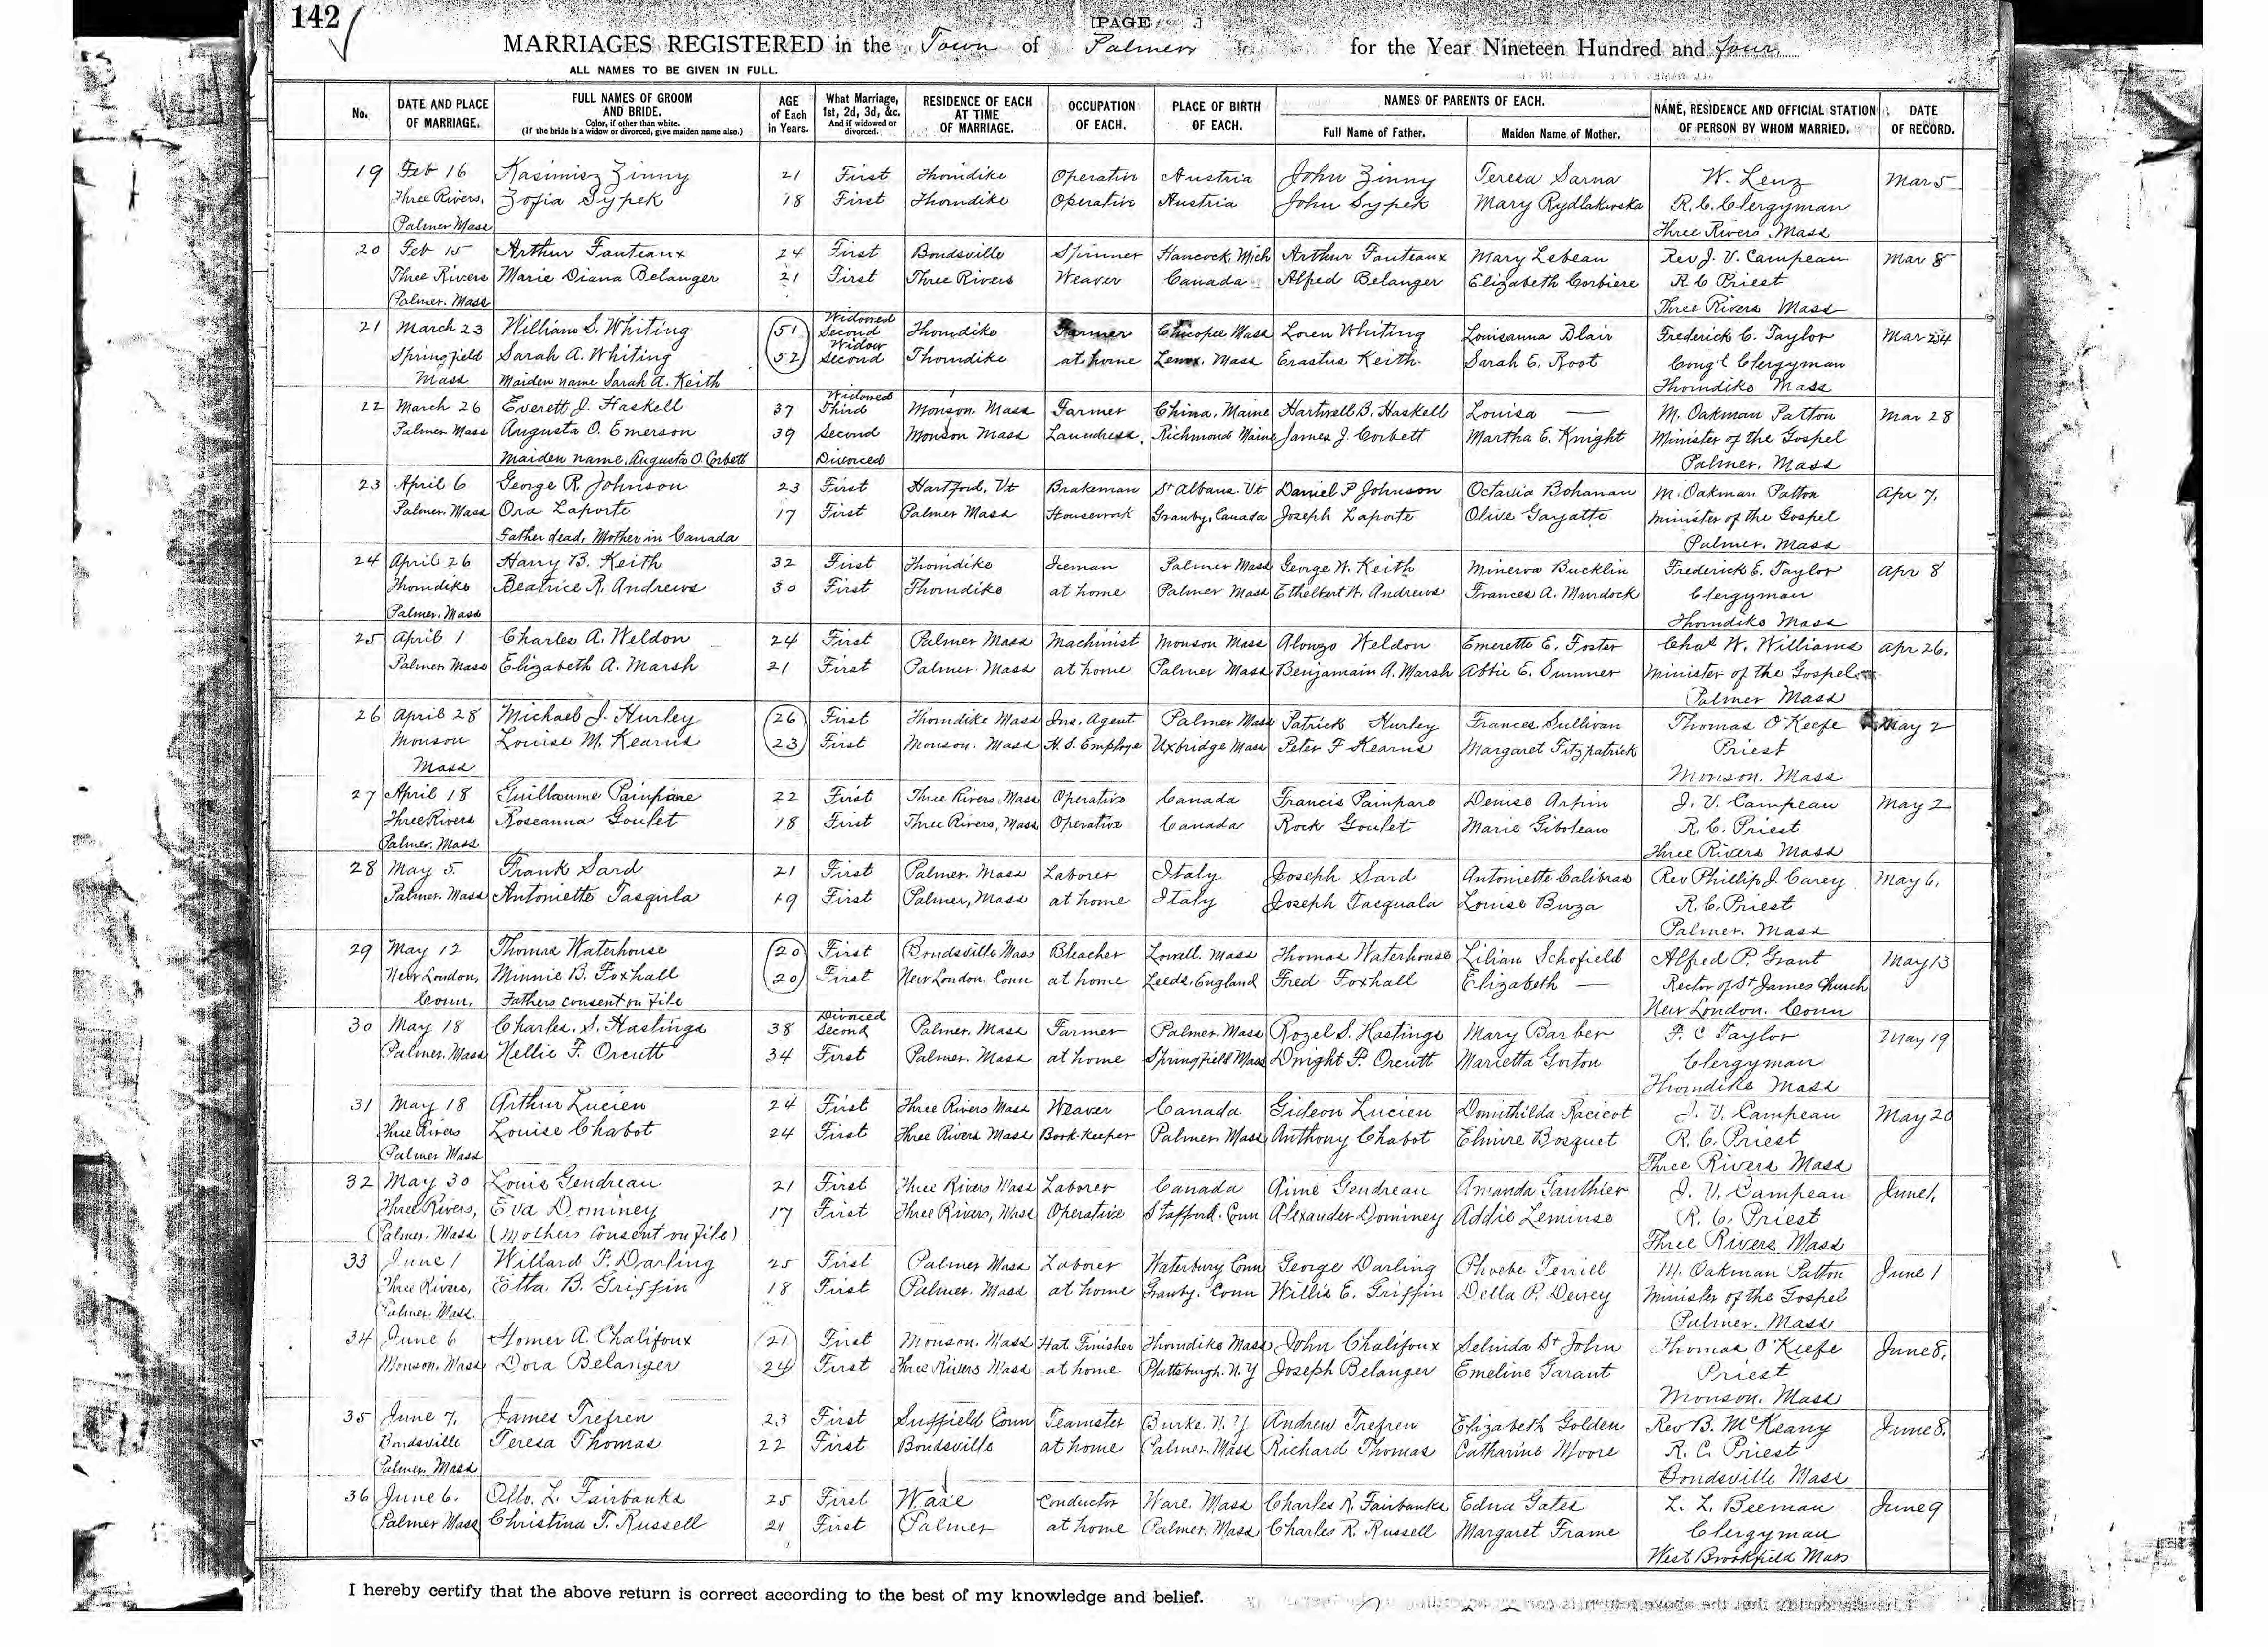 142
[PAGE .]
MARRIAGES REGISTERED in the Town of Palmer for the Year Nineteen Hundred and four
ALL NAMES TO BE GIVEN IN FULL.
No. DATE AND PLACE OF MARRIAGE. FULL NAMES OF GROOM AND BRIDE. Color, if other than white. (If the bride is a widow or divorced, give maiden name also.) AGE of Each in Years. What Marriage, 1st, 2d, 3d, &c. And if widowed or divorced. RESIDENCE OF EACH AT TIME OF MARRIAGE. OCCUPATION OF EACH. PLACE OF BIRTH OF EACH. NAMES OF PARENTS OF EACH. Full Name of Father. Maiden Name of Mother. NAME, RESIDENCE AND OFFICIAL STATION OF PERSON BY WHOM MARRIED. DATE OF RECORD.
19 Feb 16 Kasimisz Zinny 21 First Thorndike Operative Austria John Zinny Teresa Sarna W. Lenz Mar 5
Three Rivers, Zofia Sypek 18 First Thorndike Operative Austria John Sypek Mary Rydlakowska R. C. Clergyman
Palmer Mass Three Rivers Mass
20 Feb 15 Arthur Fauteaux 24 First Bondsville Spinner Hancock, Mich Arthur Fauteaux Mary Lebeau Rev J. V. Campeau Mar 8
Three Rivers Marie Diana Belanger 21 First Three Rivers Weaver Canada Alfred Belanger Elizabeth Corbiere R C Priest
Palmer. Mass Three Rivers Mass
21 March 23 William S. Whiting 51 Widowed Second Thorndike Farmer Chicopee Mass Loren Whiting Louisanna Blair Frederick C. Taylor Mar 24
Springfield Sarah A. Whiting 52 Widow Second Thorndike at home Lenox. Mass Erastus Keith. Sarah E. Root Cong'l Clergyman
Mass Maiden name Sarah A. Keith Thorndike Mass
22 March 26 Everett J. Haskell 37 Widowed Third Monson. Mass Farmer China, Maine Hartwell B. Haskell Louisa — M. Oakman Patton Mar 28
Palmer Mass Augusta O. Emerson 39 Second Monson Mass Laundress, Richmond Maine James J. Corbett Martha E. Knight Minister of the Gospel
Maiden name, Augusta O. Corbett Divorced Palmer, Mass
23 April 6 George R. Johnson 23 First Hartford, Vt Brakeman St Albans. Vt Daniel P Johnson Octavia Bohanan M. Oakman Patton Apr 7.
Palmer. Mass Ora Laporte 17 First Palmer Mass Housework Granby, Canada Joseph Laporte Olive Gayatte Minister of the Gospel
Father dead, Mother in Canada Palmer. Mass
24 April 26 Harry B. Keith 32 First Thorndike Iceman Palmer Mass George W. Keith Minerva Bucklin Frederick E. Taylor Apr 8
Thorndike Beatrice R. Andrews 30 First Thorndike at home Palmer Mass Ethelbert W. Andrews Frances A. Murdock Clergyman
Palmer. Mass Thorndike Mass
25 April 1 Charles A. Weldon 24 First Palmer Mass Machinist Monson Mass Alonzo Weldon Emerette E. Foster Chas W. Williams Apr 26.
Palmer Mass Elizabeth A. Marsh 21 First Palmer. Mass at home Palmer Mass Benjamain A. Marsh Abbie E. Sumner Minister of the Gospel
Palmer Mass
26 April 28 Michael J. Hurley 26 First Thorndike Mass Ins. Agent Palmer Mass Patrick Hurley Frances Sullivan Thomas O'Keefe May 2
Monson Louise M. Kearns 23 First Monson. Mass H. S. Employe Uxbridge Mass Peter F Kearns Margaret Fitzpatrick Priest
Mass Monson. Mass
27 April 18 Guillaume Painpare 22 First Three Rivers. Mass Operative Canada Francis Painpare Denise Arpin J. V. Campeau May 2
Three Rivers Roseanna Goulet 18 First Three Rivers, Mass Operative Canada Rock Goulet Marie Giboleau R. C. Priest
Palmer. Mass Three Rivers Mass
28 May 5. Frank Sard 21 First Palmer. Mass Laborer Italy Joseph Sard Antoniette Calibras Rev Phillip J. Carey May 6.
Palmer. Mass Antoniette Tasqirla 19 First Palmer, Mass at home Italy Joseph Tacquala Louise Buza R. C. Priest
Palmer. Mass
29 May 12 Thomas Waterhouse 20 First Bondsville Mass Bleacher Lowell. Mass Thomas Waterhouse Lilian Schofield Alfred P. Grant May 13
New London, Minnie B. Foxhall 20 First New London. Conn at home Leeds, England Fred Foxhall Elizabeth — Rector of St James Church
Conn. Fathers consent on file New London. Conn
30 May 18 Charles. S. Hastings 38 Divorced Second Palmer. Mass Farmer Palmer. Mass Rozel S. Hastings Mary Barber F. C Taylor May 19
Palmer. Mass Nellie F. Orcutt 34 First Palmer. Mass at home Springfield Mass Dwight P. Orcutt Marietta Gorton Clergyman
Thorndike Mass
31 May 18 Arthur Lucien 24 First Three Rivers Mass Weaver Canada Gideon Lucien Domithilda Racicot J. V. Campeau May 20
Three Rivers Louise Chabot 24 First Three Rivers Mass Book-Keeper Palmer Mass Anthony Chabot Elmire Bosquet R. C. Priest
Palmer Mass Three Rivers Mass
32 May 30 Louis Gendreau 21 First Three Rivers Mass Laborer Canada Aime Gendreau Amanda Gauthier J. V. Campeau June 1.
Three Rivers, Eva Dominey 17 First Three Rivers, Mass Operative Stafford. Conn Alexander Dominey Addie Lemiuse R. C. Priest
Palmer. Mass (Mothers Consent on File) Three Rivers Mass
33 June 1 Willard F. Darling 25 First Palmer Mass Laborer Waterbury Conn George Darling Phoebe Terrill M. Oakman Patton June 1
Three Rivers, Etta. B. Griffin 18 First Palmer. Mass at home Granby. Conn Willis E. Griffin Della P. Dewey Minister of the Gospel
Palmer. Mass. Palmer. Mass
34 June 6 Homer A. Chalifoux 21 First Monson. Mass Hat Finisher Thorndike Mass John Chalifoux Selinda St John Thomas O'Keefe June 8.
Monson. Mass Dora Belanger 24 First Three Rivers Mass at home Plattsburgh. N. Y Joseph Belanger Emeline Garant Priest
Monson. Mass
35 June 7. James Trefren 23 First Suffield Conn Teamster Burke. N. Y Andrew Trefren Elizabeth Golden Rev B. McKeany June 8.
Bondsville Teresa Thomas 22 First Bondsville at home Palmer. Mass Richard Thomas Catharine Moore R. C. Priest
Palmer. Mass Bondsville Mass
36 June 6. Otto. L. Fairbanks 25 First Ware Conductor Ware. Mass Charles R. Fairbanks Edna Gates L. L. Beeman June 9
Palmer Mass Christina T. Russell 21 First Palmer at home Palmer. Mass Charles R. Russell Margaret Frame Clergyman
West Brookfield Mass
I hereby certify that the above return is correct according to the best of my knowledge and belief.